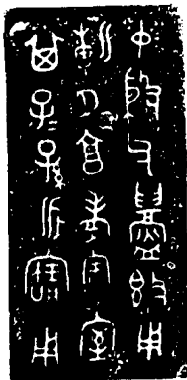 中殷父鑄簋用
朝夕享孝宗室
其子子孫永寶用